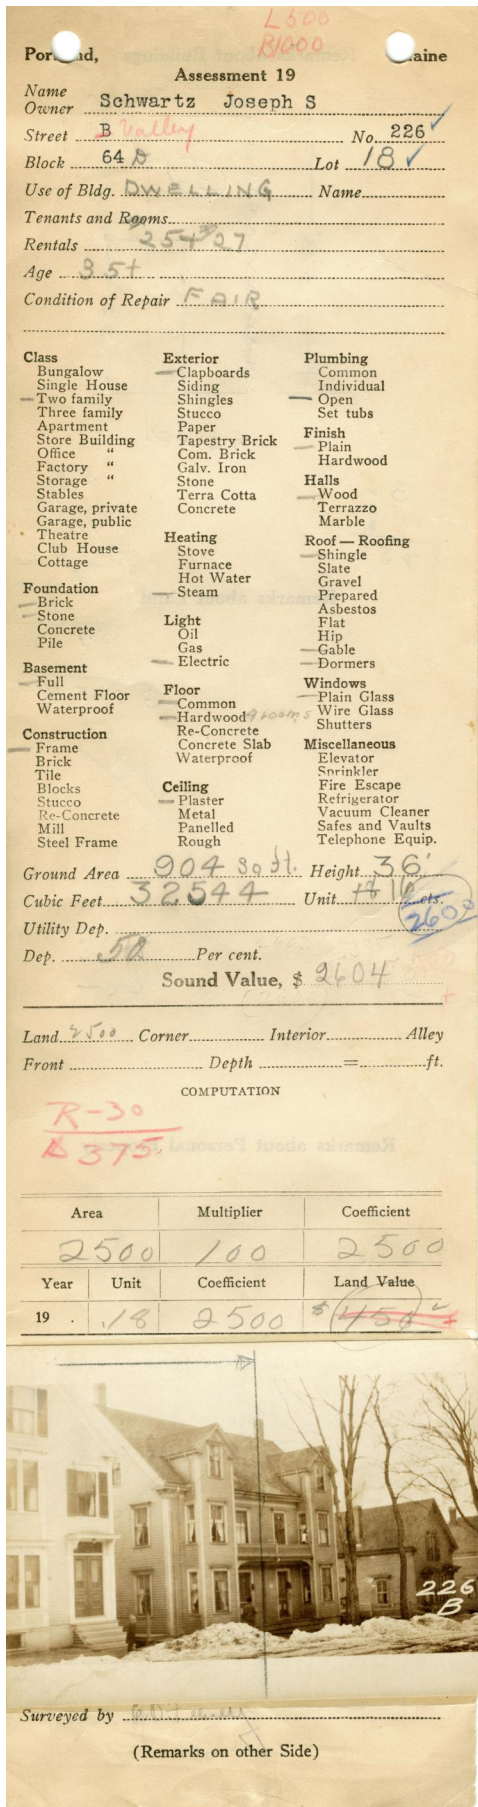 L500
B1000
Portland, Maine
Assessment 19
Name
Owner Schwartz Joseph S
Street B Valley No. 226
Block 64 D Lot 18
Use of Bldg. DWELLING Name
Tenants and Rooms
Rentals 25+ 27
Age 35+
Condition of Repair FAIR
Class
Bungalow
Single House
Two family
Three family
Apartment
Store Building
Office "
Factory "
Storage "
Stables
Garage, private
Garage, public
Theatre
Club House
Cottage
Foundation
Brick
Stone
Concrete
Pile
Basement
Full
Cement Floor
Waterproof
Construction
Frame
Brick
Tile
Blocks
Stucco
Re-Concrete
Mill
Steel Frame
Exterior
Clapboards
Siding
Shingles
Stucco
Paper
Tapestry Brick
Com. Brick
Galv. Iron
Stone
Terra Cotta
Concrete
Heating
Stove
Furnace
Hot Water
Steam
Light
Oil
Gas
Electric
Floor
Common
Hardwood rooms
Re-Concrete
Concrete Slab
Waterproof
Ceiling
Plaster
Metal
Panelled
Rough
Plumbing
Common
Individual
Open
Set tubs
Finish
Plain
Hardwood
Halls
Wood
Terrazzo
Marble
Roof — Roofing
Shingle
Slate
Gravel
Prepared
Asbestos
Flat
Hip
Gable
Dormers
Windows
Plain Glass
Wire Glass
Shutters
Miscellaneous
Elevator
Sprinkler
Fire Escape
Refrigerator
Vacuum Cleaner
Safes and Vaults
Telephone Equip.
Ground Area 904 Sq ft. Height 36'
Cubic Feet 32544 Unit 16 cts.
2600
Utility Dep.
Dep. 50 Per cent.
Sound Value, $ 2604
Land 2500 Corner Interior Alley
Front Depth = ft.
COMPUTATION
R-30
375
Area Multiplier Coefficient
2500 100 2500
Year Unit Coefficient Land Value
19 . .18 2500 $ 450
226
B
Surveyed by
(Remarks on other Side)